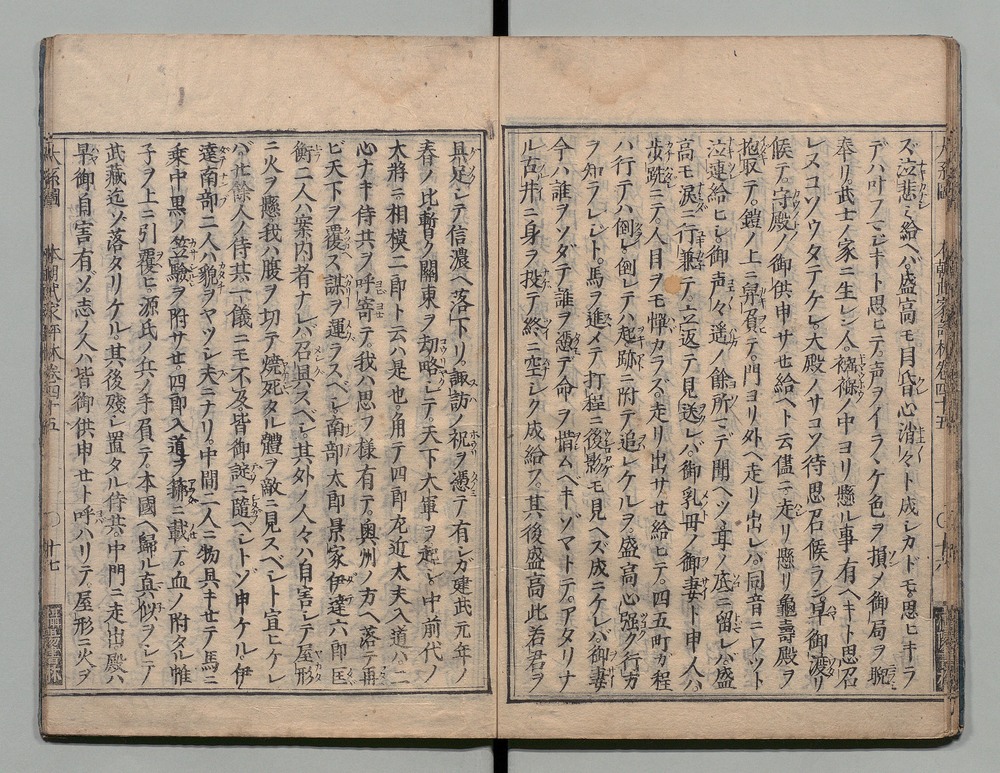 ズ泣悲ミ給ヘバ盛高モ目昏心消々ト成シカドモ思ヒキラ
デハ叶フマジキト思ヒテ声ヲイララケ色ヲ損メ御局ヲ睨
奉リ武士ノ家ニ生レシ人襁褓ノ中ヨリ懸ル事有ヘキト思召
レスコソウタテケレ大殿ノサコソ待思召候ラン早御渡リ
候テ守殿ノ御供申サセ給ヘト云儘ニ走リ懸リ亀壽殿ヲ
抱取テ鎧ノ上ニ舁負テ門ヨリ外ヘ走リ出レハ同音ニワット
泣連給ヒシ御声々遥ノ餘所マデ聞ヘツヽ耳ノ底ニ留レバ盛
高モ涙ニ行兼テ立返テ見送レバ御乳母ノ御妻ト申人ハ
歩跣ニテ人目ヲモ憚カラズ走リ出サセ給ヒテ四五町ガ程
ハ行テハ倒レ倒レテハ起跡ニ附テ追レケルヲ盛高心強ク行方
ヲ知ラレジト馬ヲ進メテ打程ニ後影モ見ヘズ成ニケレバ御妻
今ハ誰ヲソダテ誰ヲ憑デ命ヲ惜ムベキゾマトテアタリナ
ル古井ニ身ヲ投テ終ニ空シク成給フ其後盛高此若君ヲ
具足シテ信濃ヘ落下リ諏訪ノ祝ヲ憑テ有シガ建武元年ノ
春ノ比暫ク關東ヲ劫略シテ天下ノ大軍ヲ起シ中前代ノ
大將ニ相模二郎ト云ハ是也角テ四郎左近太夫入道ハ二
心ナキ侍共ヲ呼寄テ我ハ思フ様有テ奥州ノ方ヘ落テ再
ビ天下ヲ覆ス謀ヲ運ラスベシ南部太郎景家伊達六郎匡
衡二人ハ案内者ナレバ召具スベシ其外ノ人々ハ自害シテ屋形
ニ火ヲ懸我ハ腹ヲ切テ焼死タル體ヲ敵ニ見スベシト宜ヒケレ
バ廿餘人ノ侍共一儀ニモ不及皆御諚ニ隨ベシトゾ申ケル伊
達南部二人ハ貌ヲヤツシ夫ニナリ中間二人ニ物具キセテ馬ニ
乗中黒ノ笠驗ヲ附サセ四郎入道ヲ[箯]ニ載テ血ノ附タル帷
子ヲ上ニ引覆ヒ源氏ノ兵ノ手負テ本國ヘ歸ル真似ヲシテ
武藏迄ゾ落タリケル其後殘シ置タル侍共中門ニ走出殿ハ
早御自害有ゾ志ノ人ハ皆御供申セト呼ハリテ屋形ニ火ヲ
本朝武家評林巻四十五
十七